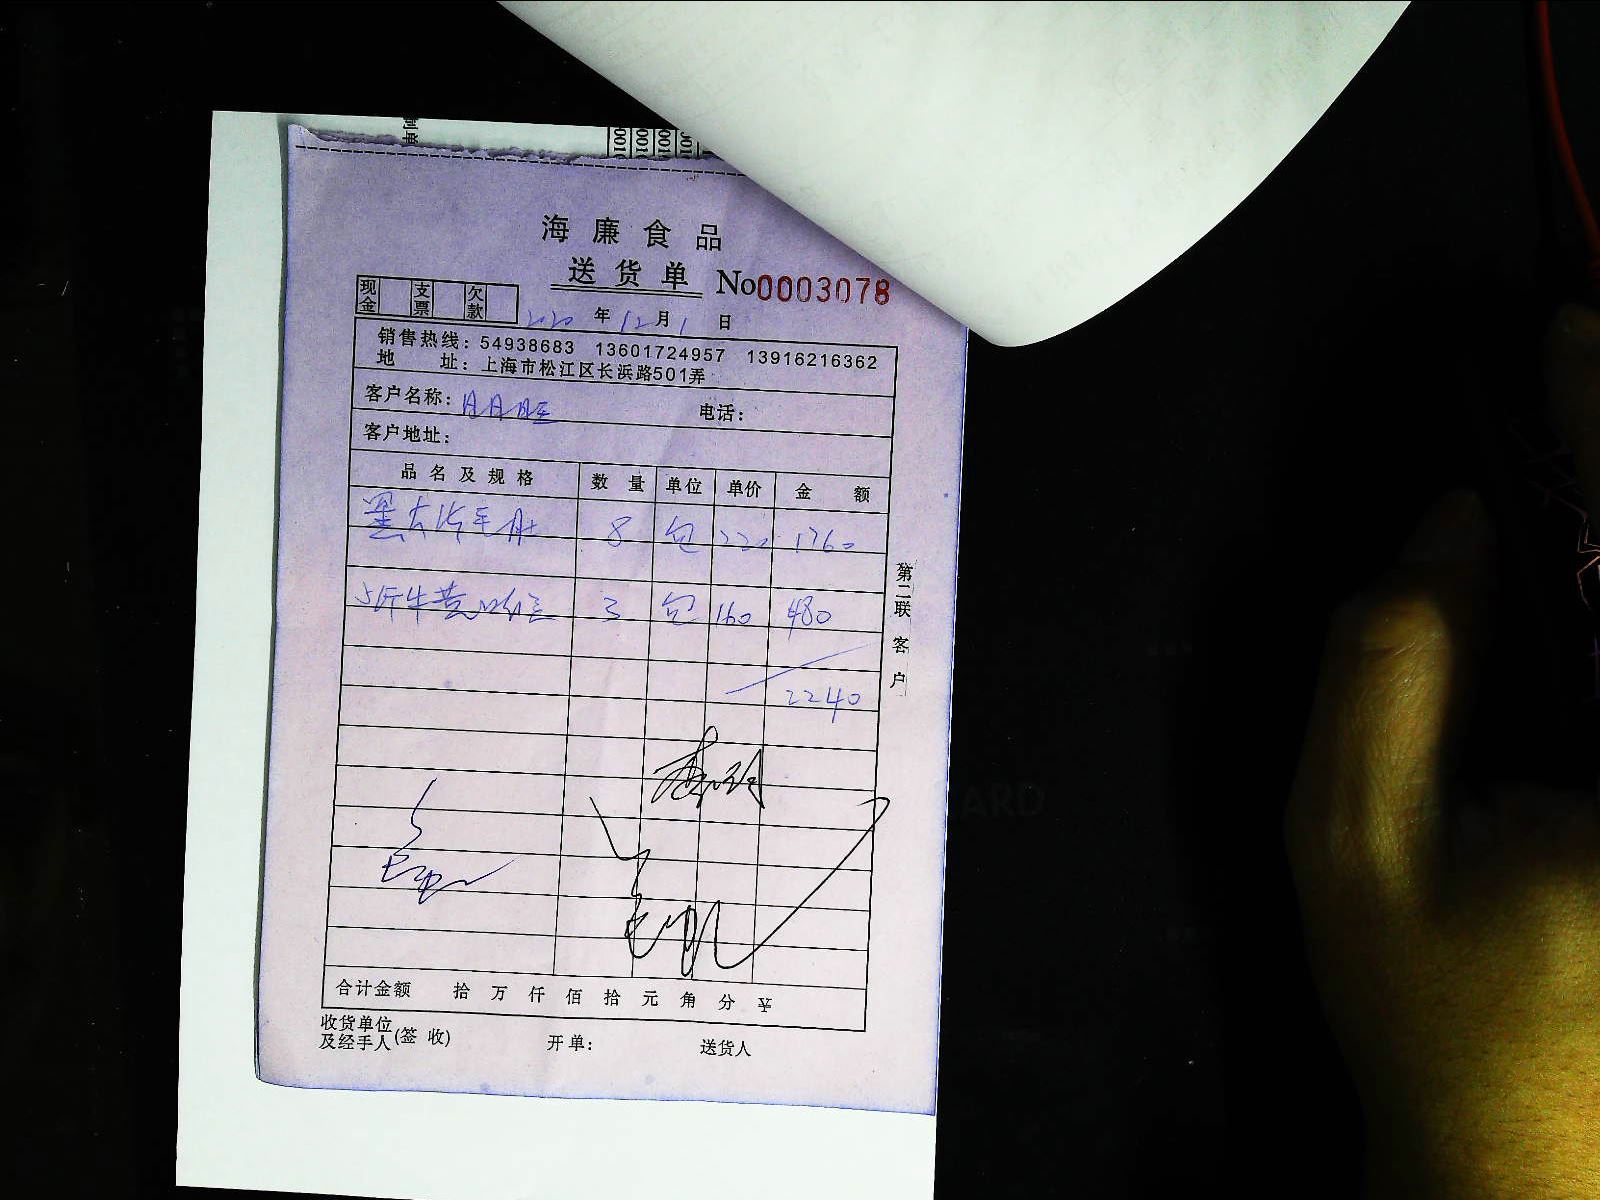 海廉食品
送货单 No0003078
现金 支票 欠款
2020年12月1日
销售热线：54938683 13601724957 13916216362
地 址：上海市松江区长浜路501弄
客户名称：月月旺 电话：
客户地址：
品名及规格 数量 单位 单价 金额
8 包 220 1760
3 包 160 480
2240
第二联 客户
合计金额 拾 万 仟 佰 拾 元 角 分 ¥
收货单位及经手人(签收) 开单： 送货人